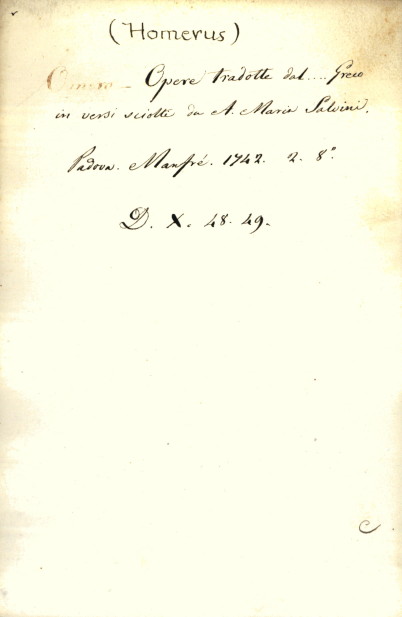 (Homerus)
Omero - Opere tradotte dal .... Greco
in versi sciolte da A. Maria Salvini.
Padova. Manfré. 1742. 2. 8°.
D. X. 48. 49.
C